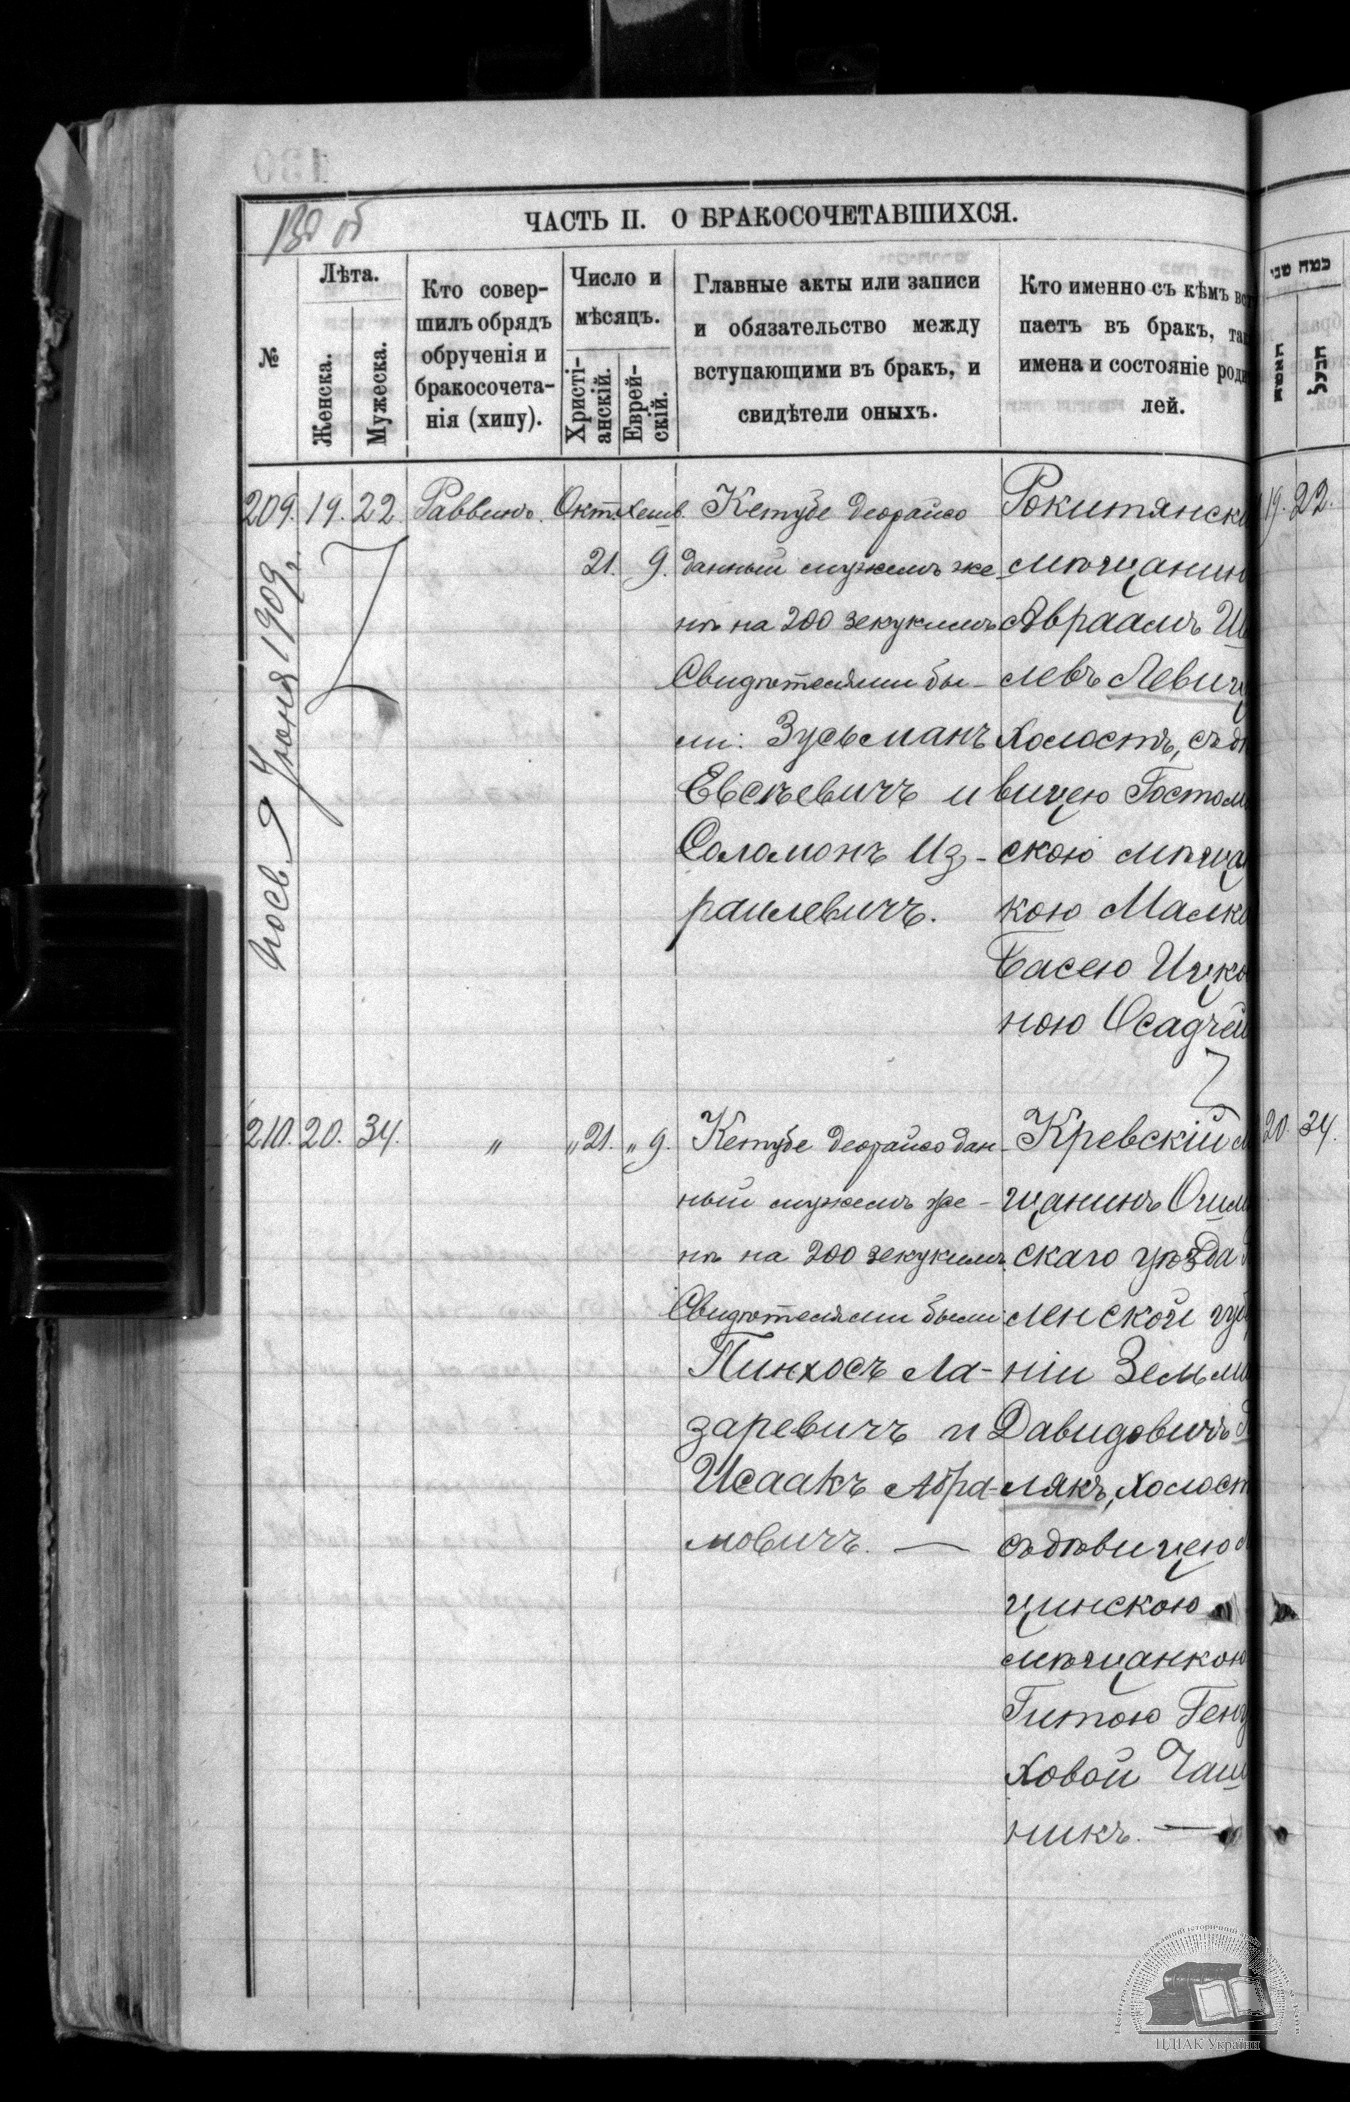 130 об
ЧАСТЬ II. О БРАКОСОЧЕТАВШИХСЯ.
№
Лѣта.
Женска.
Мужеска.
Кто совер-
шилъ обрядъ
обрученія и
бракосочета-
нія (хипу).
Число и
мѣсяцъ.
Христі-
анскій.
Еврей-
скій.
Главные акты или записи
и обязательство между
вступающими въ бракъ, и
свидѣтели оныхъ.
Кто именно съ кѣмъ вс
паетъ въ бракъ, та
имена и состояніе род
лей.
כמה שני
האשה
הבעל
209. 19. 22. Раввинъ. Окт. Хешв.
21. 9.
Кетубе деорайсо
данный мужемъ же-
нѣ на 200 зекукимъ
Свидѣтелями бы-
ли: Зусьманъ
Евсѣевичъ и
Соломонъ Из-
раилевичъ.
Рокитянск
мѣщанин
Авраамъ Ш
левъ Левич
холостъ, съ дѣ
вицею Гостом
скою мѣща
кою Малк
Басею Ицко
ною Осадчей
19. 22.
9 Іюня 1909 г.
210. 20. 34. „ „ 21. „ 9.
Кетубе деорайсо дан-
ный мужемъ же-
нѣ на 200 зекукимъ.
Свидѣтелями были:
Пинхосъ Ла-
заревичъ и
Исаакъ Абра-
мовичъ. —
Кревскій м
щанинъ Ошм
скаго уѣзда
ленской губ
ніи Зельма
Давидовичъ
лякъ, холост
съ дѣвицею
цинскою
мѣщанкою
Гитою Ген
ховой Чаш
никъ. —
20. 34.
ЦДІАК України